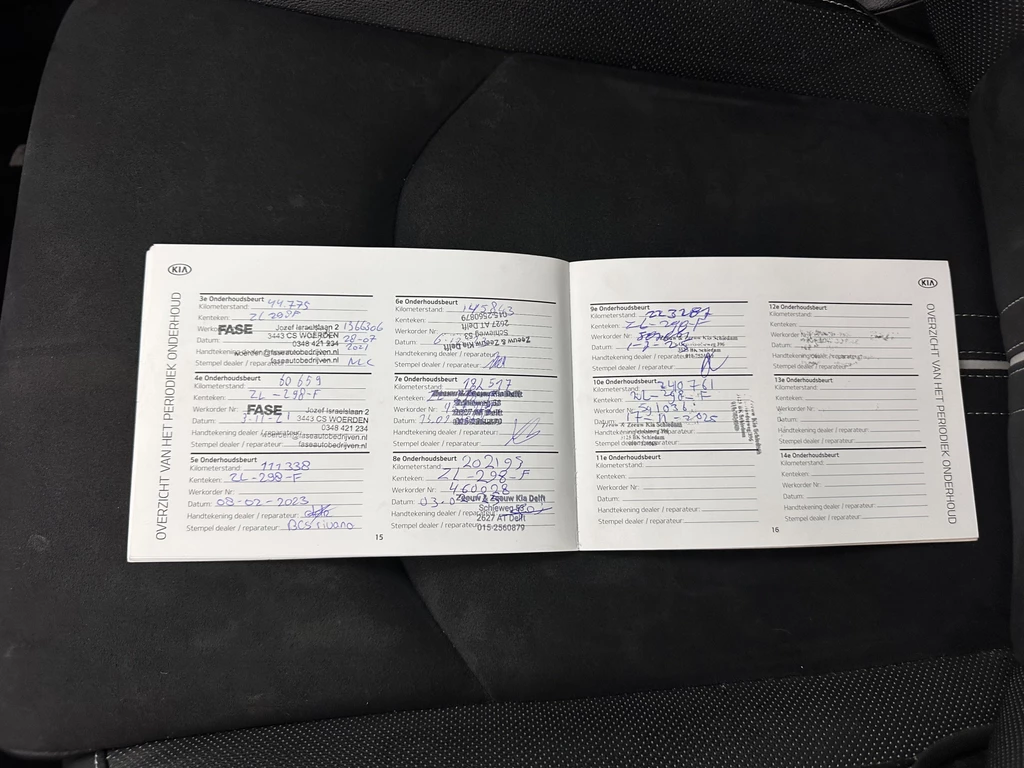 KIA
OVERZICHT VAN HET PERIODIEK ONDERHOUD
3e Onderhoudsbeurt
Kilometerstand: 44.775
Kenteken: ZL298F
FASE Jozef Israelslaan 2 1366306
3443 CS WOERDEN
Datum: 0348 421 234 28-07 2021
Handtekening woerden@faseautobedrijven.nl
Stempel dealer / reparateur: faseautobedrijven.nl
4e Onderhoudsbeurt
Kilometerstand: 60659
Kenteken: ZL-298-F
Werkorder Nr: FASE Jozef Israelslaan 2
Datum: 3443 CS WOERDEN
0348 421 234
Handtekening dealer / reparateur: woerden@faseautobedrijven.nl
Stempel dealer / reparateur: faseautobedrijven.nl
5e Onderhoudsbeurt
Kilometerstand: 111338
Kenteken: ZL-298-F
Werkorder Nr:
Datum: 08-02-2023
Handtekening dealer / reparateur:
Stempel dealer / reparateur:
6e Onderhoudsbeurt
Kilometerstand: 145863
Kenteken:
Werkorder Nr:
Datum:
Zeeuw & Zeeuw Kia Delft
Schieweg 53
2627 AT Delft
015-2560879
Handtekening dealer / reparateur:
Stempel dealer / reparateur:
7e Onderhoudsbeurt
Kilometerstand: 182517
Kenteken: Zeeuw & Zeeuw Kia Delft
Werkorder Nr:
Datum:
Handtekening dealer / reparateur:
Stempel dealer / reparateur:
8e Onderhoudsbeurt
Kilometerstand: 202195
Kenteken: ZL-298-F
Werkorder Nr: 460028
Datum: Zeeuw & Zeeuw Kia Delft
Handtekening dealer / reparateur: Schieweg 53
2627 AT Delft
Stempel dealer / reparateur: 015-2560879
15
KIA
OVERZICHT VAN HET PERIODIEK ONDERHOUD
9e Onderhoudsbeurt
Kilometerstand: 223287
Kenteken: ZL-298-F
Werkorder Nr:
Datum: Zeeuw & Zeeuw Kia Schiedam
Handtekening dealer / reparateur:
Stempel dealer / reparateur:
10e Onderhoudsbeurt
Kilometerstand: 240761
Kenteken: ZL-298-F
Werkorder Nr:
Datum:
Handtekening dealer / reparateur: Zeeuw & Zeeuw Kia Schiedam
Stempel dealer / reparateur:
11e Onderhoudsbeurt
Kilometerstand:
Kenteken:
Werkorder Nr:
Datum:
Handtekening dealer / reparateur:
Stempel dealer / reparateur:
12e Onderhoudsbeurt
Kilometerstand:
Kenteken:
Werkorder Nr:
Datum:
Handtekening dealer
Stempel dealer / reparateur:
13e Onderhoudsbeurt
Kilometerstand:
Kenteken:
Werkorder Nr:
Datum:
Handtekening dealer / reparateur:
Stempel dealer / reparateur:
14e Onderhoudsbeurt
Kilometerstand:
Kenteken:
Werkorder Nr:
Datum:
Handtekening dealer / reparateur:
Stempel dealer / reparateur:
16